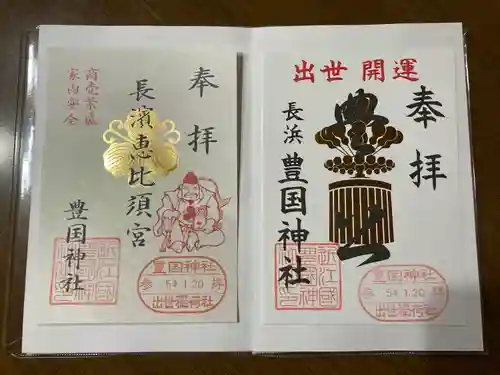 出世 開運
奉拝
長浜 豊国神社
豊
豊国神社
参 5.1.20 拝
出世稲荷社
奉拝
商売繁盛
家内安全
長濱恵比須宮
豊国神社
豊国神社
参 5.1.20 拝
出世稲荷社